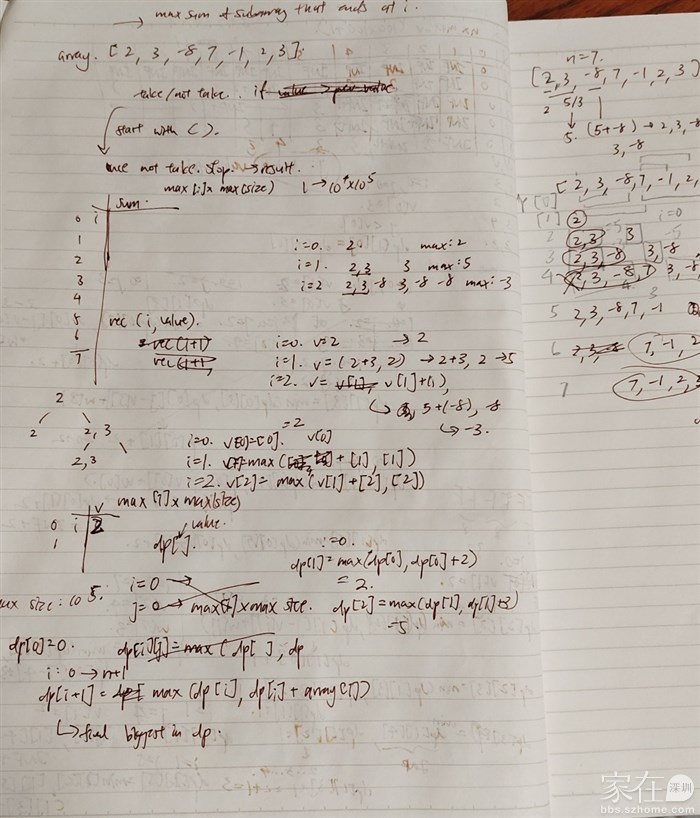 max sum of subarray that ends at i.
array. [2, 3, -8, 7, -1, 2, 3];
take/not take. if value > prev value
start with ( ).
once not take. stop. → result.
max [i] x max(size) 1 → 10⁴ x 10⁵
sum.
0 i
1
2
3
4
5
6
7
i=0. 2 max: 2
i=1. 2,3 3 max: 5
i=2 2,3,-8 3,-8 -8 max: -3
rec (i, value).
rec(i+1)
rec(i+1,
i=0. v=2 → 2
i=1. v=(2+3, 2) → 2+3, 2 → 5
i=2. v= v[1], v[1]+(1),
5+(-8), -8
→ -3.
2
2 2,3
2,3
=2
i=0. v[0]=[0]. v[0]
i=1. v[1]=max( + [1], [1])
i=2. v[2]= max(v[1]+[2], [2])
max [i] x max(size)
v
0 i 2
1
value.
dp[ ].
i=0.
dp[1]=max(dp[0], dp[0]+2)
= 2.
max size: 10⁵.
i=0 →
j=0 → max[i] x max size.
dp[2]=max(dp[1], dp[1]+3)
=5.
dp[0]=0.
dp[i][j]=max(dp[ ], dp
i: 0 → n+1
dp[i+1] = dp[ max(dp[i], dp[i]+array[i])
→ find biggest in dp.
n=7.
[2, 3, -8, 7, -1, 2, 3]
2 5/3
5. (5+-8) → 2, 3, -8
3, -8
[2, 3, -8, 7, -1, 2,
[0]
[1] 2 i=0
2 2,3 3
3 2,3,-8 3,-8
4 2,3,-8,7 3,-8,
5 2,3,-8,7,-1
6 2,3,-8 7,-1,2
7 7,-1,2,3
家在深圳
bbs.szhome.com